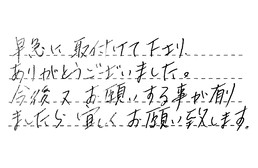 早急に取付けて下さり
ありがとうございました。
今後又お願いする事が有り
ましたら宜しくお願い致します。